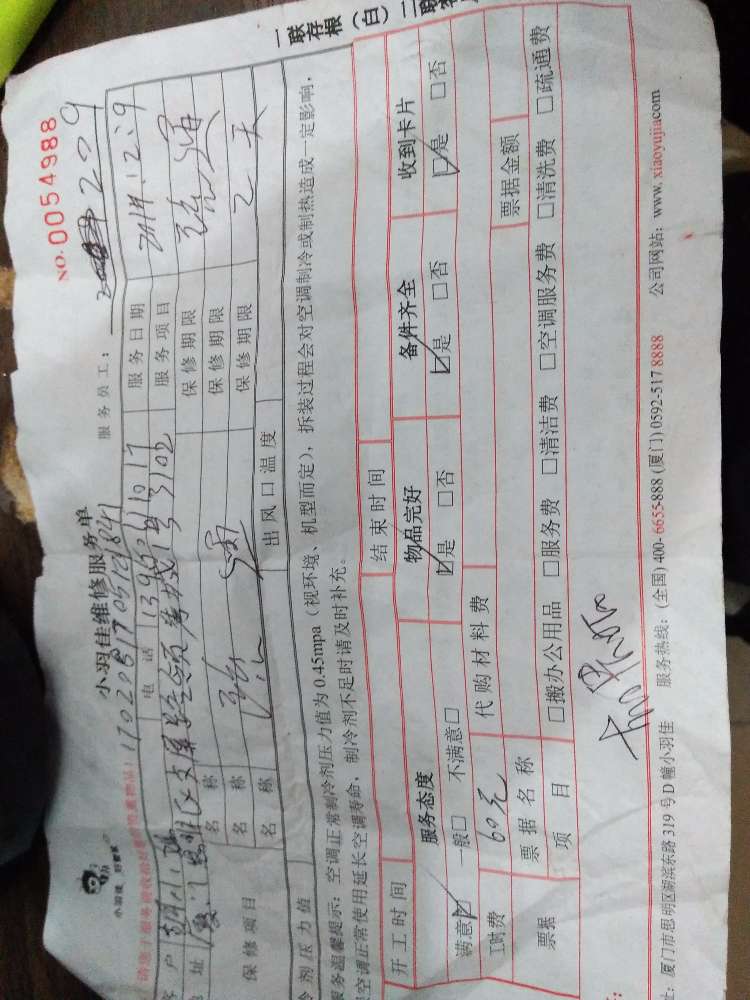 一联存根（白）二联
NO.0054988
小羽佳 好管家
小羽佳维修服务单
服务员工： 209
请您于服务前收拾好贵重物品！
户 电话 服务日期
地址 3102 服务项目
保修项目 名称 保修期限
名称 保修期限
名称 保修期限 天
冷剂压力值 出风口温度
服务温馨提示：空调正常制冷剂压力值为0.45mpa（视环境、机型而定），拆装过程会对空调制冷或制热造成一定影响，
空调正常使用延长空调寿命，制冷剂不足时请及时补充。
开工时间 结束时间
服务态度 物品完好 备件齐全 收到卡片
满意☑ 一般□ 不满意□ ☑是 □否 ☑是 □否 ☑是 □否
工时费 60元 代购材料费
票据 票据名称 票据金额
项目 □搬办公用品 □服务费 □清洁费 □空调服务费 □清洗费 □疏通费
厦门市思明区湖滨东路319号D幢小羽佳 服务热线：(全国)400-6655-888 (厦门)0592-517 8888 公司网站：www.xiaoyujia.com